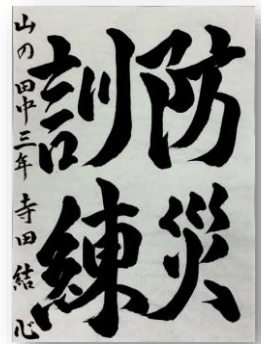 防災
訓練
山の田中三年 寺田結心